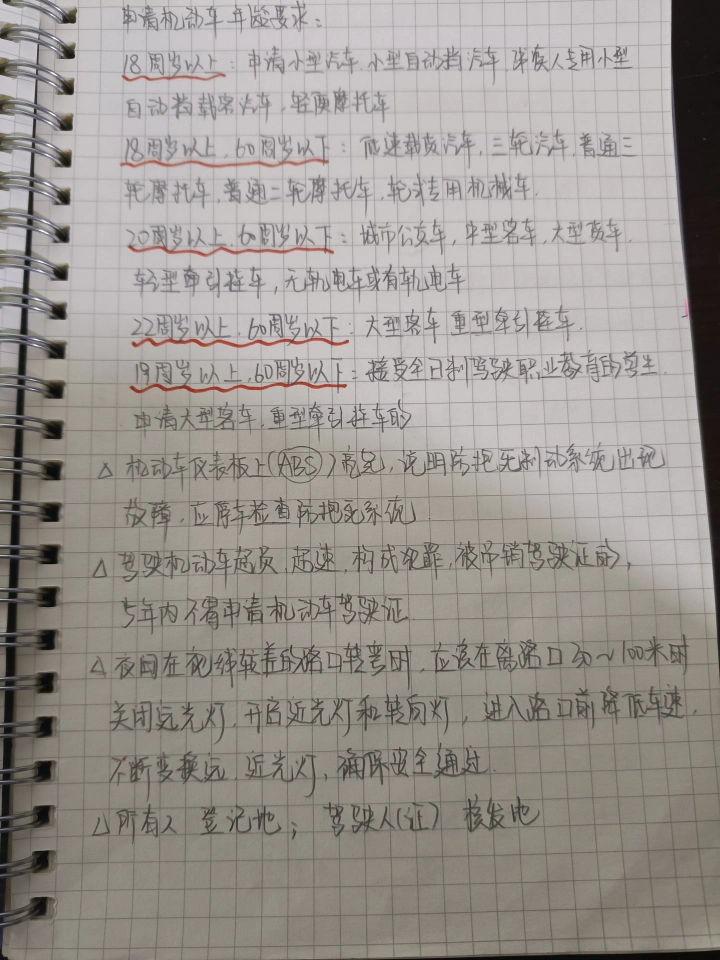 申请机动车年龄要求：
18周岁以上：申请小型汽车.小型自动挡汽车 残疾人专用小型
自动挡载客汽车，轻便摩托车
18周岁以上，60周岁以下：低速载货汽车，三轮汽车，普通三
轮摩托车，普通二轮摩托车，轮式专用机械车.
20周岁以上，60周岁以下：城市公交车，中型客车，大型货车，
轻型牵引挂车，无轨电车或有轨电车
22周岁以上，60周岁以下：大型客车 重型牵引挂车.
19周岁以上，60周岁以下：接受全日制驾驶职业教育的学生
申请大型客车，重型牵引挂车的
△ 机动车仪表板上(ABS))亮起，说明防抱死制动系统出现
故障，应停车检查防抱死系统
△ 驾驶机动车超员，超速，构成犯罪，被吊销驾驶证的，
5年内不得申请机动车驾驶证
△ 夜间在视线较差的路口转弯时，应该在离路口30～100米时
关闭远光灯，开启近光灯和转向灯，进入路口前降低车速，
不断变换远.近光灯，确保安全通过.
△所有人 登记地；驾驶人(证) 核发地